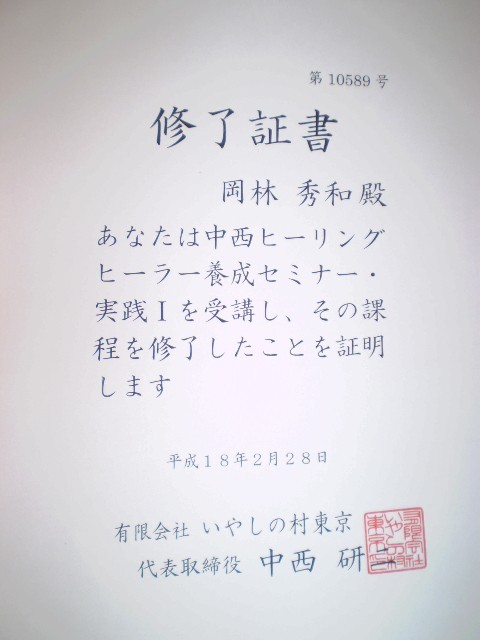 第10589号
修了証書
岡林 秀和殿
あなたは中西ヒーリング
ヒーラー養成セミナー・
実践Ⅰを受講し、その課
程を修了したことを証明
します
平成18年2月28日
有限会社 いやしの村東京
代表取締役 中西 研二